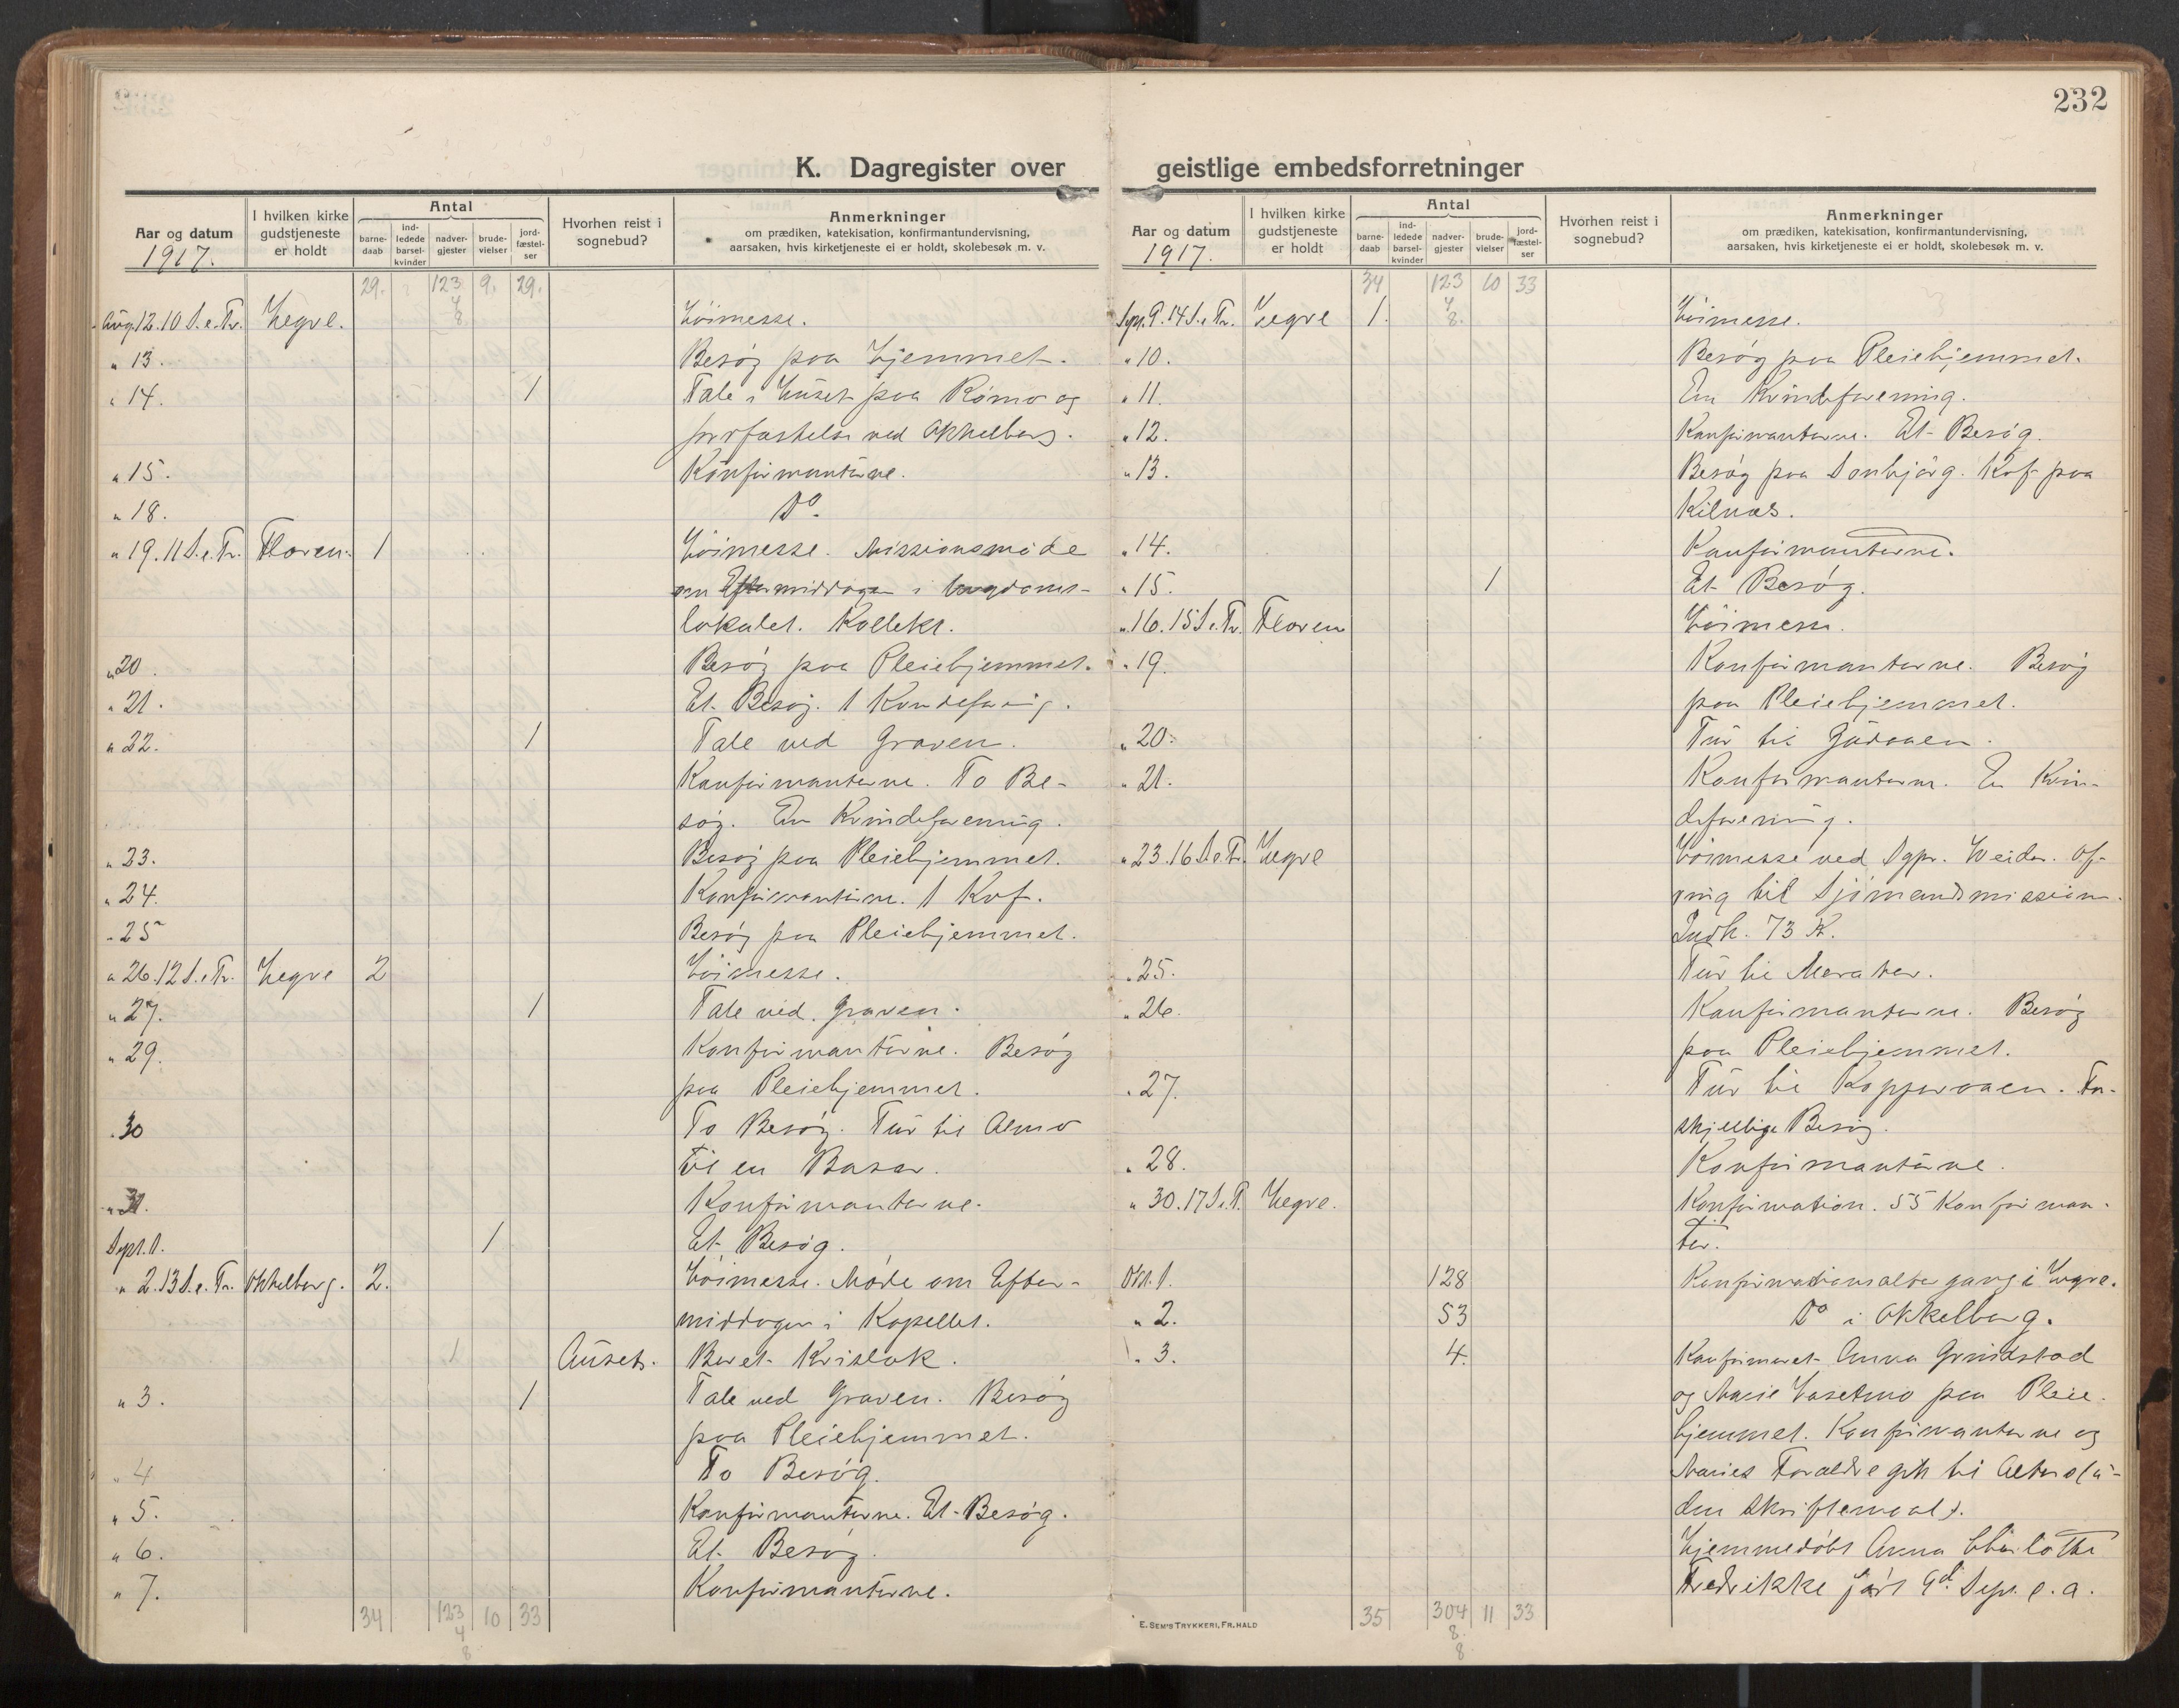 232
K. Dagregister over geistlige embedsforretninger
Aar og datum
1917.
I hvilken kirke gudstjeneste er holdt
Antal
barnedaab
indledede barselkvinder
nadvergjester
brudevielser
jordfæstelser
Hvorhen reist i sognebud?
Anmerkninger
om prædiken, katekisation, konfirmantundervisning,
aarsaken, hvis kirketjeneste ei er holdt, skolebesøk m. v.
29. 123 9. 29.
4
8.
Aug. 12. 10 S. e. Tr. Hegre. Höimesse.
" 13. Besøg paa Hjemmet.
" 14. 1 Tale i Huset paa Römo og
jordfæstelse ved Okkelberg.
" 15. Konfirmanterne.
" 18. Do.
" 19. 11 S. e. Tr. Floren. 1 Höimesse. Missionsmöde
om Eftermiddagen i Ungdoms-
lokalet. Kollekt.
" 20. Besøg paa Pleiehjemmet.
" 21. Et Besøg. 1 Kvindeforening.
" 22. 1 Tale ved Graven.
Konfirmanterne. To Be-
søg. En Kvindeforening.
" 23. Besøg paa Pleiehjemmet.
" 24. Konfirmanterne. 1 Kvf.
" 25 Besøg paa Pleiehjemmet.
" 26. 12 S. e. Tr. Hegre 2 Höimesse.
" 27. 1 Tale ved Graven.
" 29. Konfirmanterne. Besøg
paa Pleiehjemmet.
" 30 To Besøg. Tur til Almo
til en Basar.
" 31. Konfirmanterne.
Sept. 1. 1 Et Besøg.
" 2. 13 S. e. Tr. Okkelberg. 2. Höimesse. Möde om Efter-
middagen i Kapellet.
1 Auset. Beret
" 3. 1 Tale ved Graven. Besøg
paa Pleiehjemmet.
" 4 To Besøg.
" 5. Konfirmanterne. Et Besøg.
" 6. Et Besøg.
" 7. Konfirmanterne.
34 123 10 33
4
8
Aar og datum
1917.
I hvilken kirke gudstjeneste er holdt
Antal
barnedaab
indledede barselkvinder
nadvergjester
brudevielser
jordfæstelser
Hvorhen reist i sognebud?
Anmerkninger
om prædiken, katekisation, konfirmantundervisning,
aarsaken, hvis kirketjeneste ei er holdt, skolebesøk m. v.
34 123 10 33
4
8.
Sept. 9. 14 S. e. Tr. Hegre 1. Höimesse.
" 10. Besøg paa Pleiehjemmet.
" 11. En Kvindeforening.
" 12. Konfirmanterne. Et Besøg.
" 13. Besøg paa Kvf. paa
Kilnæs.
" 14. Konfirmanterne.
" 15. 1 Et Besøg.
" 16. 15 S. e. Tr. Floren Höimesse.
" 19. Konfirmanterne. Besøg
paa Pleiehjemmet.
" 20. Tur til Gudaaen.
" 21. Konfirmanterne. En Kvin-
deforening.
" 23. 16 S. e. Tr. Hegre Höimesse ved Sgpr. Of-
ring til Sjömandsmission.
Indk. 73 K.
" 25. Tur til Meraker.
" 26. Konfirmanterne. Besøg
paa Pleiehjemmet.
" 27. Tur til Kopperaaen. For-
skjellige Besøg.
" 28. Konfirmanterne.
" 30. 17 S. e. T. Hegre. Konfirmation. 55 Konfirman-
ter.
Okt. 1. 128 Konfirmationsaltergang i Hegre.
" 2. 53 Do i Okkelberg.
" 3. 4. Konfirmeret Anna Grindstad
og Marie paa Pleie-
hjemmet. Konfirmanterne og
Maries Forældre gik til Alters (u-
den Skriftemaal).
Hjemmedöbt Anna Charlotte
Fredrikke født 9d. Sept. s. a.
35 304 11 33
8.
8
E. SEM'S TRYKKERI, FR.HALD